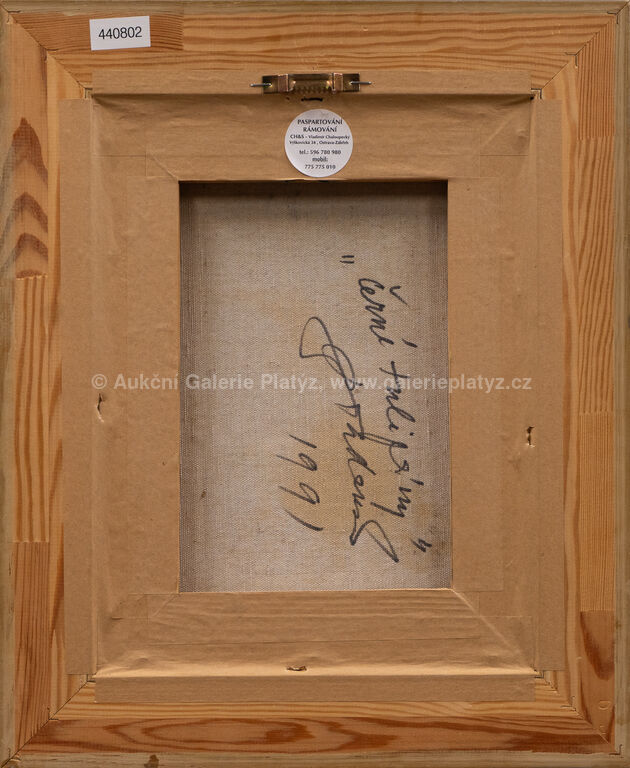 440802
PASPARTOVÁNÍ
RÁMOVÁNÍ
CH&S - Vladimír Chaloupecký
Výškovická 26, Ostrava-Zábřeh
tel.: 596 780 980
mobil:
775 775 010
"černé tulipány"
1991
© Aukční Galerie Platýz, www.galerieplatyz.cz